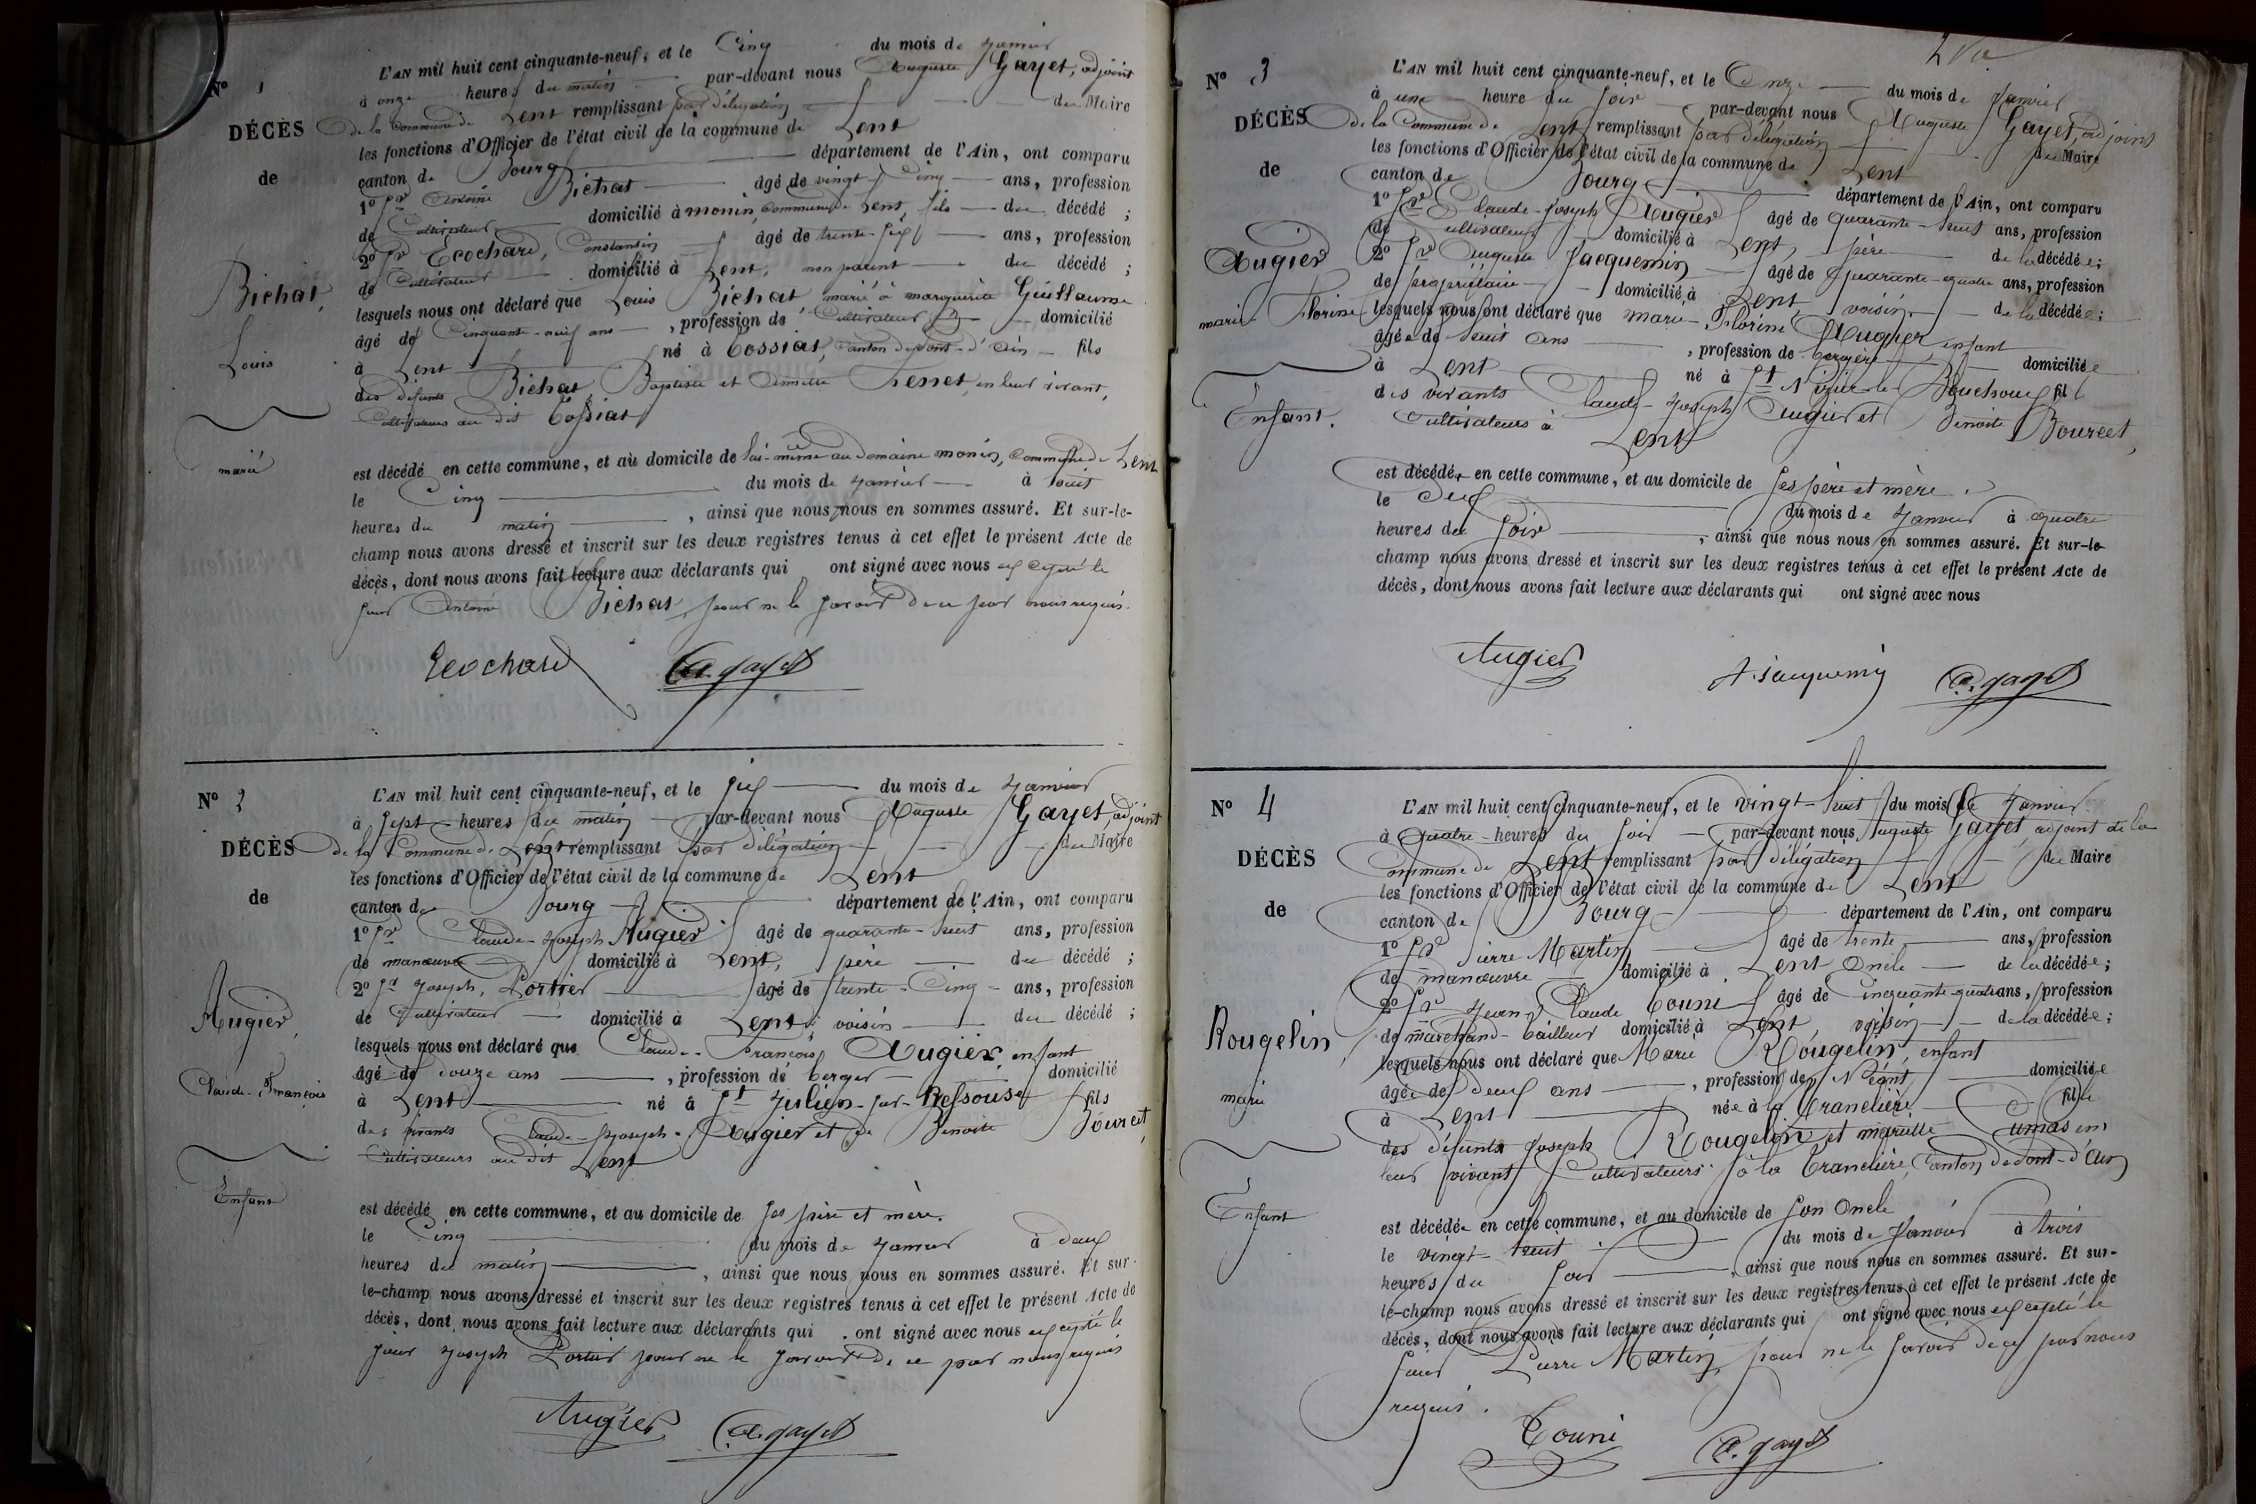 N° 1
DÉCÈS
de
Bichat,
Louis
marié
L'AN mil huit cent cinquante-neuf, et le Cinq du mois de Janvier
à onze heures du matin par-devant nous Auguste Gayet, adjoint
de la Commune de Lent remplissant par délégation du Maire
les fonctions d'Officier de l'état civil de la commune de Lent
canton de Bourg département de l'Ain, ont comparu
1° Sr Antoine Bichat âgé de vingt Cinq ans, profession
de Cultivateur domicilié à monin, Commune de Lent, fils du décédé ;
2° Sr Ecochard, Constantin âgé de trente-six ans, profession
de Cultivateur domicilié à Lent, non parent du décédé ;
lesquels nous ont déclaré que Louis Bichat marié à marguerite Guillaume
âgé de Cinquante-neuf ans, profession de Cultivateur domicilié
à Lent né à Cossiat, Canton de pont-d'ain fils
des défunts Bichat Baptiste et en leur vivant,
Cultivateurs au dit Cossiat
est décédé en cette commune, et au domicile de lui-même au domaine monin, Commune de Lent
le Cinq du mois de Janvier à huit
heures du matin, ainsi que nous nous en sommes assuré. Et sur-le-
champ nous avons dressé et inscrit sur les deux registres tenus à cet effet le présent Acte de
décès, dont nous avons fait lecture aux déclarants qui ont signé avec nous excepté le
sieur Antoine Bichat, pour ne le savoir de ce par nous requis.
Ecochard A. gayet
N° 2
DÉCÈS
de
Augier,
Claude-François
Enfant
L'AN mil huit cent cinquante-neuf, et le six du mois de Janvier
à sept heures du matin par-devant nous Auguste Gayet, adjoint
de la Commune de Lent remplissant par délégation du Maire
les fonctions d'Officier de l'état civil de la commune de Lent
canton de Bourg département de l'Ain, ont comparu
1° Sr Claude-Joseph Augier âgé de quarante-huit ans, profession
de manœuvre domicilié à Lent, père du décédé ;
2° Sr Joseph, Portier âgé de trente-Cinq ans, profession
de Cultivateur domicilié à Lent, voisin du décédé ;
lesquels nous ont déclaré que Claude-François Augier, enfant
âgé de douze ans, profession de berger domicilié
à Lent né à St Julien-sur-Ressouse fils
des vivants Claude-Joseph Augier et de Benoite Bourcet,
Cultivateurs au dit Lent
est décédé en cette commune, et au domicile de ses père et mère.
le Cinq du mois de Janvier à deux
heures du matin, ainsi que nous nous en sommes assuré. Et sur-
le-champ nous avons dressé et inscrit sur les deux registres tenus à cet effet le présent Acte de
décès, dont nous avons fait lecture aux déclarants qui ont signé avec nous excepté le
sieur Joseph Portier pour ne le savoir de ce par nous requis
Augier A. gayet
N° 3
DÉCÈS
de
Augier
marie Florine
Enfant.
L'AN mil huit cent cinquante-neuf, et le Onze du mois de Janvier
à une heure du soir par-devant nous Auguste Gayet, adjoint
de la Commune de Lent remplissant par délégation du Maire
les fonctions d'Officier de l'état civil de la commune de Lent
canton de Bourg département de l'Ain, ont comparu
1° Sr Claude-Joseph Augier âgé de quarante-huit ans, profession
de Cultivateur domicilié à Lent, père de la décédée ;
2° Sr Auguste Jacquemin âgé de quarante-quatre ans, profession
de propriétaire domicilié à Lent, voisin de la décédée ;
lesquels nous ont déclaré que marie-Florine Augier, enfant
âgée de huit ans, profession de bergère domiciliée
à Lent né à St Nizier-le-Bouchoux fil
des vivants Claude-Joseph Augier et Benoite Bourcet,
Cultivateurs à Lent
est décédée en cette commune, et au domicile de ses père et mère.
le dix du mois de Janvier à quatre
heures du soir, ainsi que nous nous en sommes assuré. Et sur-le-
champ nous avons dressé et inscrit sur les deux registres tenus à cet effet le présent Acte de
décès, dont nous avons fait lecture aux déclarants qui ont signé avec nous
Augier A. Jacquemin A. gayet
N° 4
DÉCÈS
de
Rougelin,
marie
Enfant
L'AN mil huit cent cinquante-neuf, et le vingt-huit du mois de Janvier
à quatre heures du soir par-devant nous Auguste Gayet, adjoint de la
Commune de Lent remplissant par délégation du Maire
les fonctions d'Officier de l'état civil de la commune de Lent
canton de Bourg département de l'Ain, ont comparu
1° Sr Pierre Martin âgé de trente ans, profession
de manœuvre domicilié à Lent Oncle de la décédée ;
2° Sr Jean-Claude Couni âgé de Cinquante-quatre ans, profession
de marchand-tailleur domicilié à Lent, voisin de la décédée ;
lesquels nous ont déclaré que Marie Rougelin, enfant
âgée de deux ans, profession de Néant domiciliée
à Lent née à la Tranclière fille
des défunts Joseph Rougelin et mariette Dumas en
leur vivant Cultivateurs à la Tranclière, Canton de pont-d'ain
est décédée en cette commune, et au domicile de son Oncle
le vingt-huit du mois de Janvier à trois
heures du soir, ainsi que nous nous en sommes assuré. Et sur-
le-champ nous avons dressé et inscrit sur les deux registres tenus à cet effet le présent Acte de
décès, dont nous avons fait lecture aux déclarants qui ont signé avec nous excepté le
sieur Pierre Martin, pour ne le savoir de ce par nous
requis.
Couni A. gayet